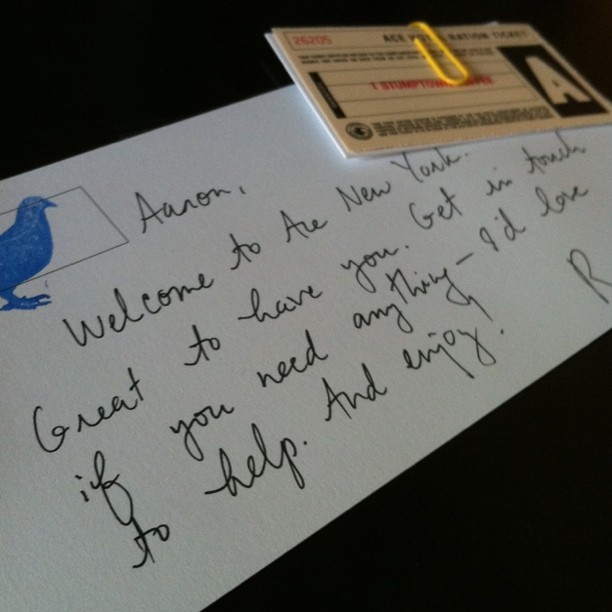 26205 ACE RATION TICKET
1 STUMPTOWN
A
Aaron,
Welcome to Ace New York.
Great to have you. Get in touch
if you need anything – I'd love
to help. And enjoy.
R